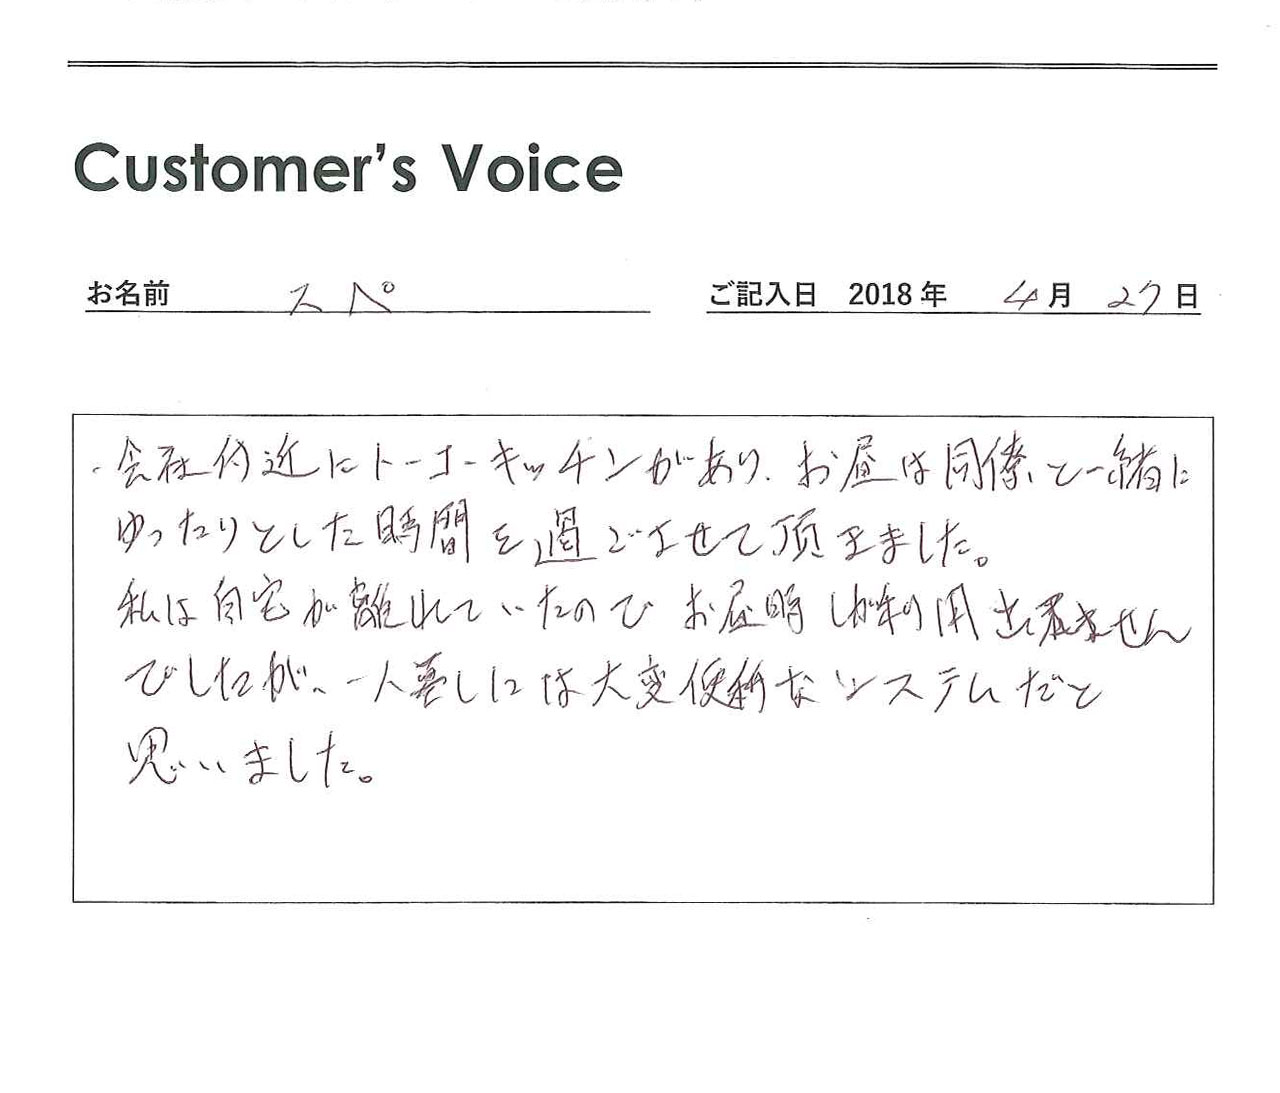 Customer's Voice
お名前 スペ ご記入日 2018年 4月 27日
・会社付近にトーコーキッチンがあり、お昼は同僚と一緒に
ゆったりとした時間を過ごさせて頂きました。
私は自宅が離れていたのでお昼時しか利用出来ません
でしたが、一人暮しには大変便利なシステムだと
思いました。